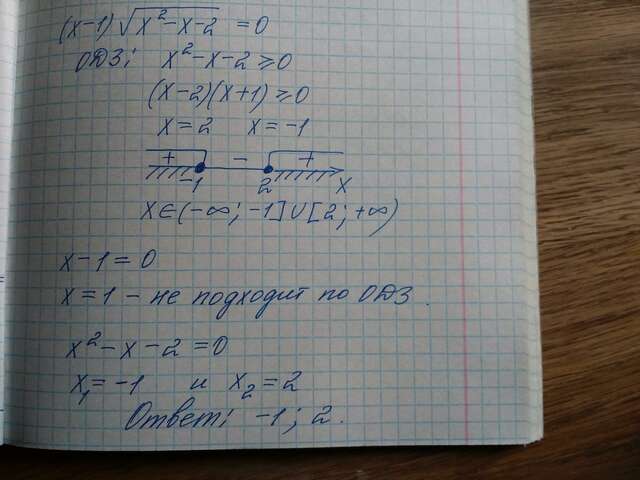 (x-1)√(x²-x-2) = 0
ОДЗ: x²-x-2 ≥ 0
(x-2)(x+1) ≥ 0
x = 2 x = -1
+ - +
-1 2 x
x ∈ (-∞; -1] ∪ [2; +∞)
x-1 = 0
x = 1 - не подходит по ОДЗ.
x² - x - 2 = 0
x₁ = -1 и x₂ = 2
Ответ: -1; 2.